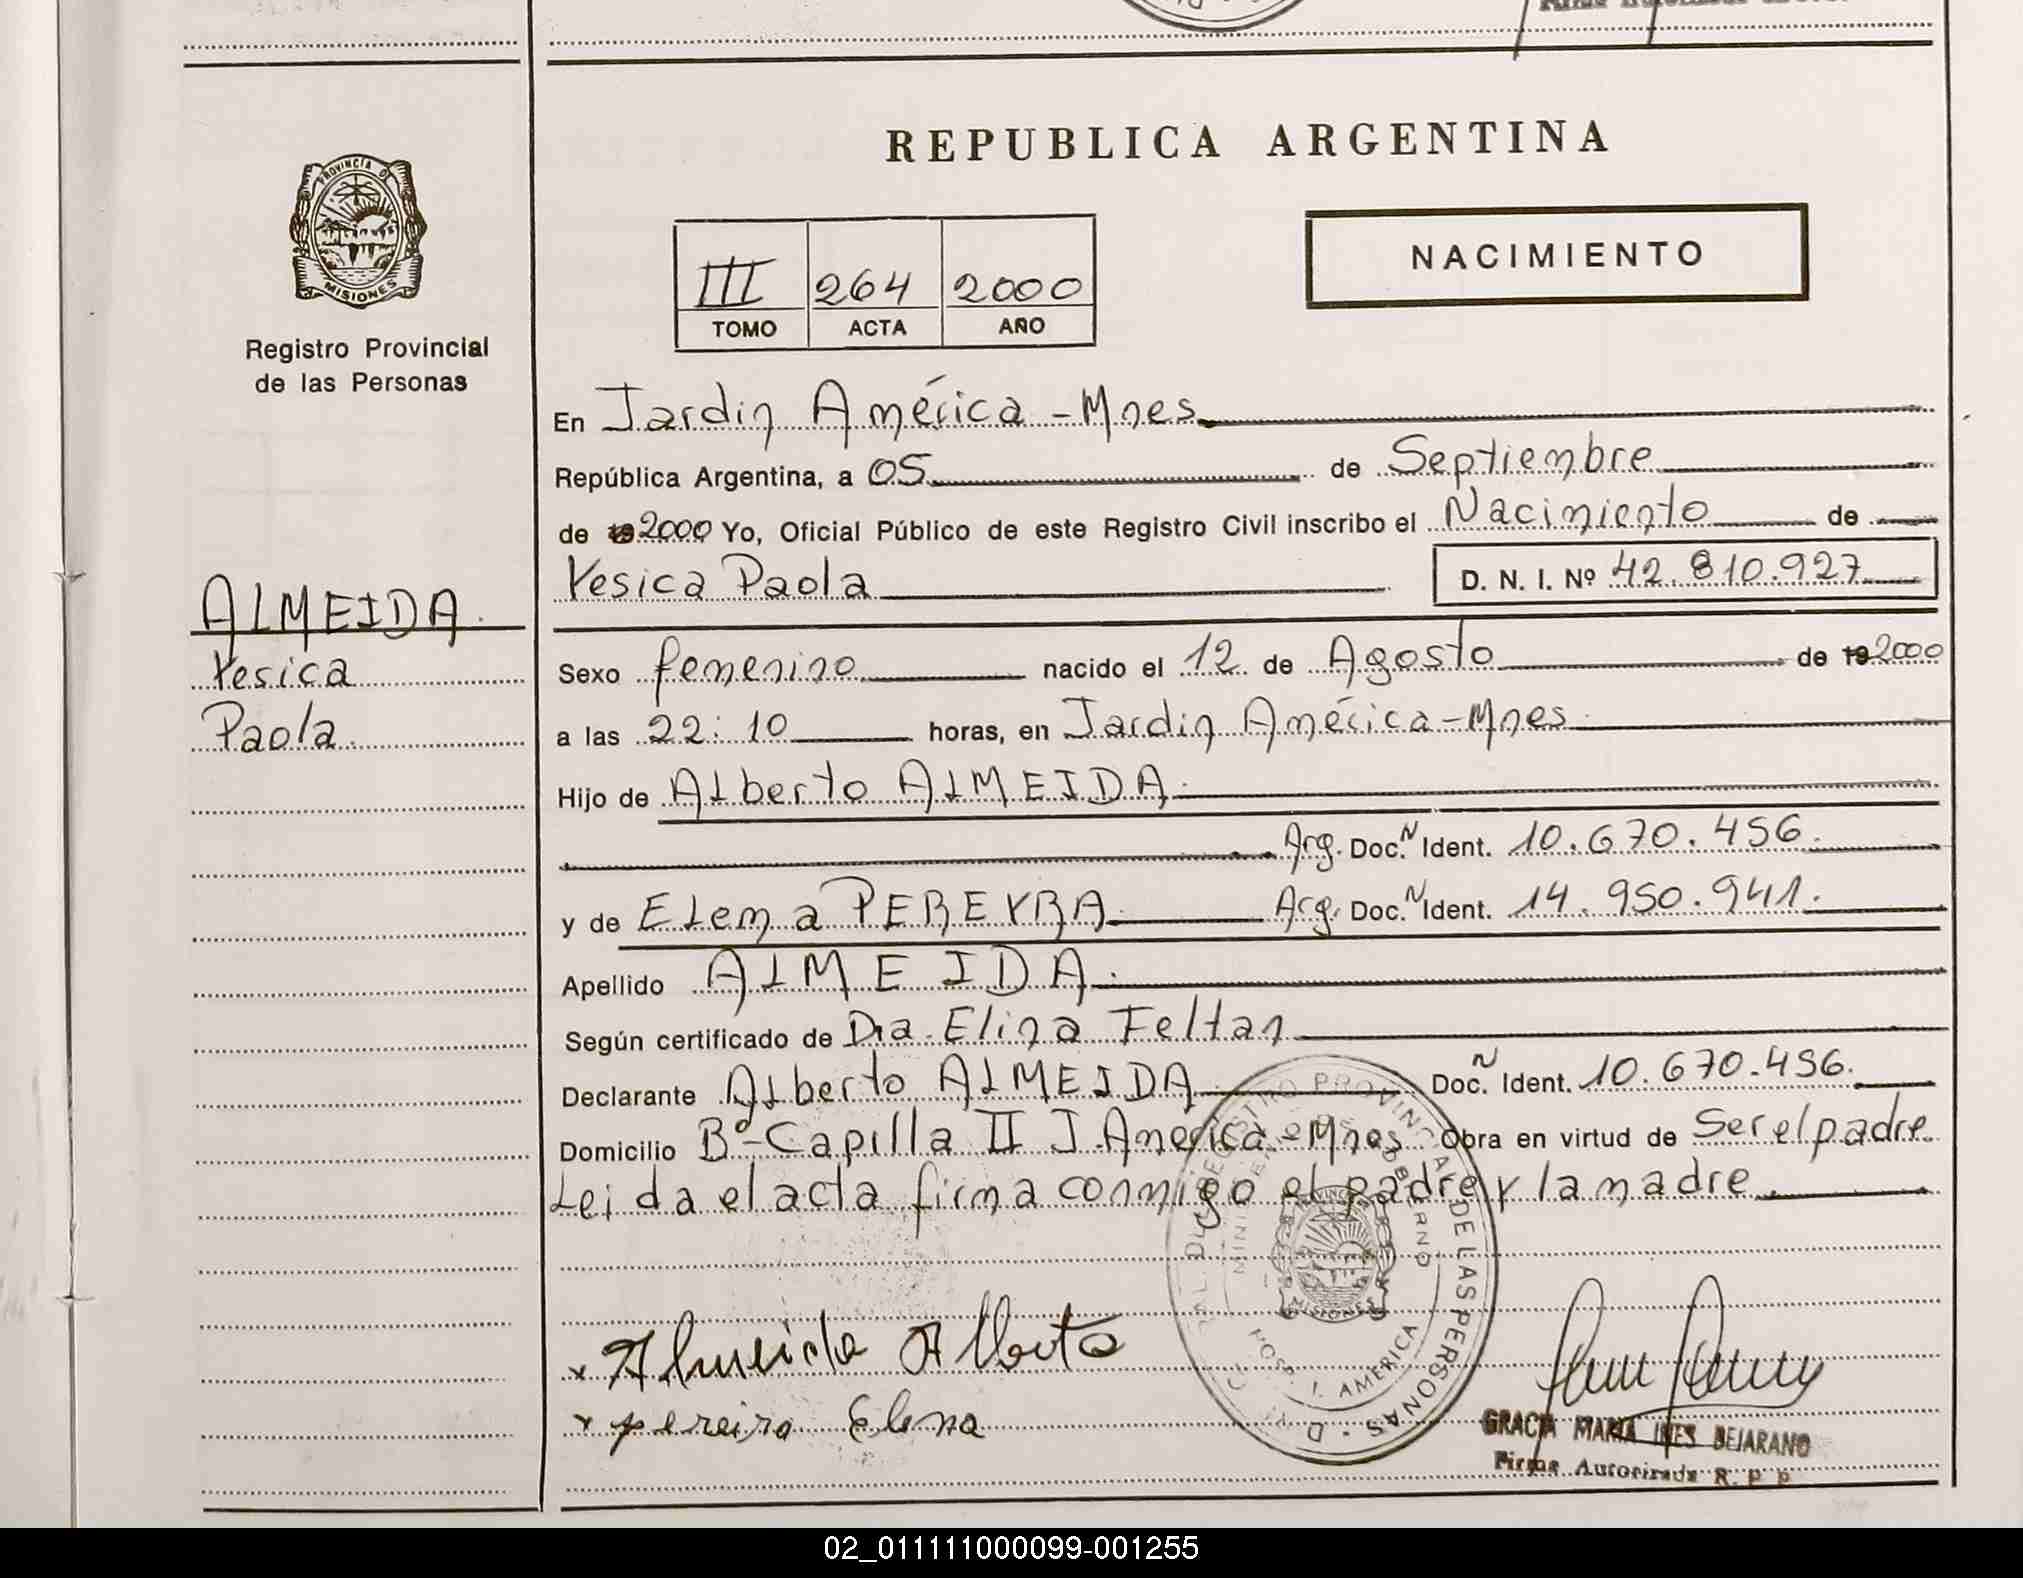 REPUBLICA ARGENTINA
PROVINCIA DE
MISIONES
Registro Provincial
de las Personas
NACIMIENTO
III 264 2000
TOMO ACTA AÑO
En Jardin América - Mnes
República Argentina, a 05 de Septiembre
de 19 2000 Yo, Oficial Público de este Registro Civil inscribo el Nacimiento de
Yesica Paola D. N. I. Nº 42.810.927
ALMEIDA.
Yesica
Paola.
Sexo femenino nacido el 12 de Agosto de 19 2000
a las 22:10 horas, en Jardin América - Mnes
Hijo de Alberto ALMEIDA.
Arg. Doc. N Ident. 10.670.456.
y de Elena PEREYRA Arg. Doc. N Ident. 14.950.941.
Apellido ALMEIDA.
Según certificado de Dra. Elina Feltan
Declarante Alberto ALMEIDA Doc. N Ident. 10.670.456.
Domicilio Bº-Capilla II J. America - Mnes Obra en virtud de Ser el padre.
Leida el acta firma conmigo el padre y la madre
REGISTRO PROVINCIAL DE LAS PERSONAS
MISIONES
AMERICA
x Almeida Alberto
x pereira Elena
GRACIA MARIA INES BEJARANO
Firma Autorizada R. P. P.
02_011111000099-001255